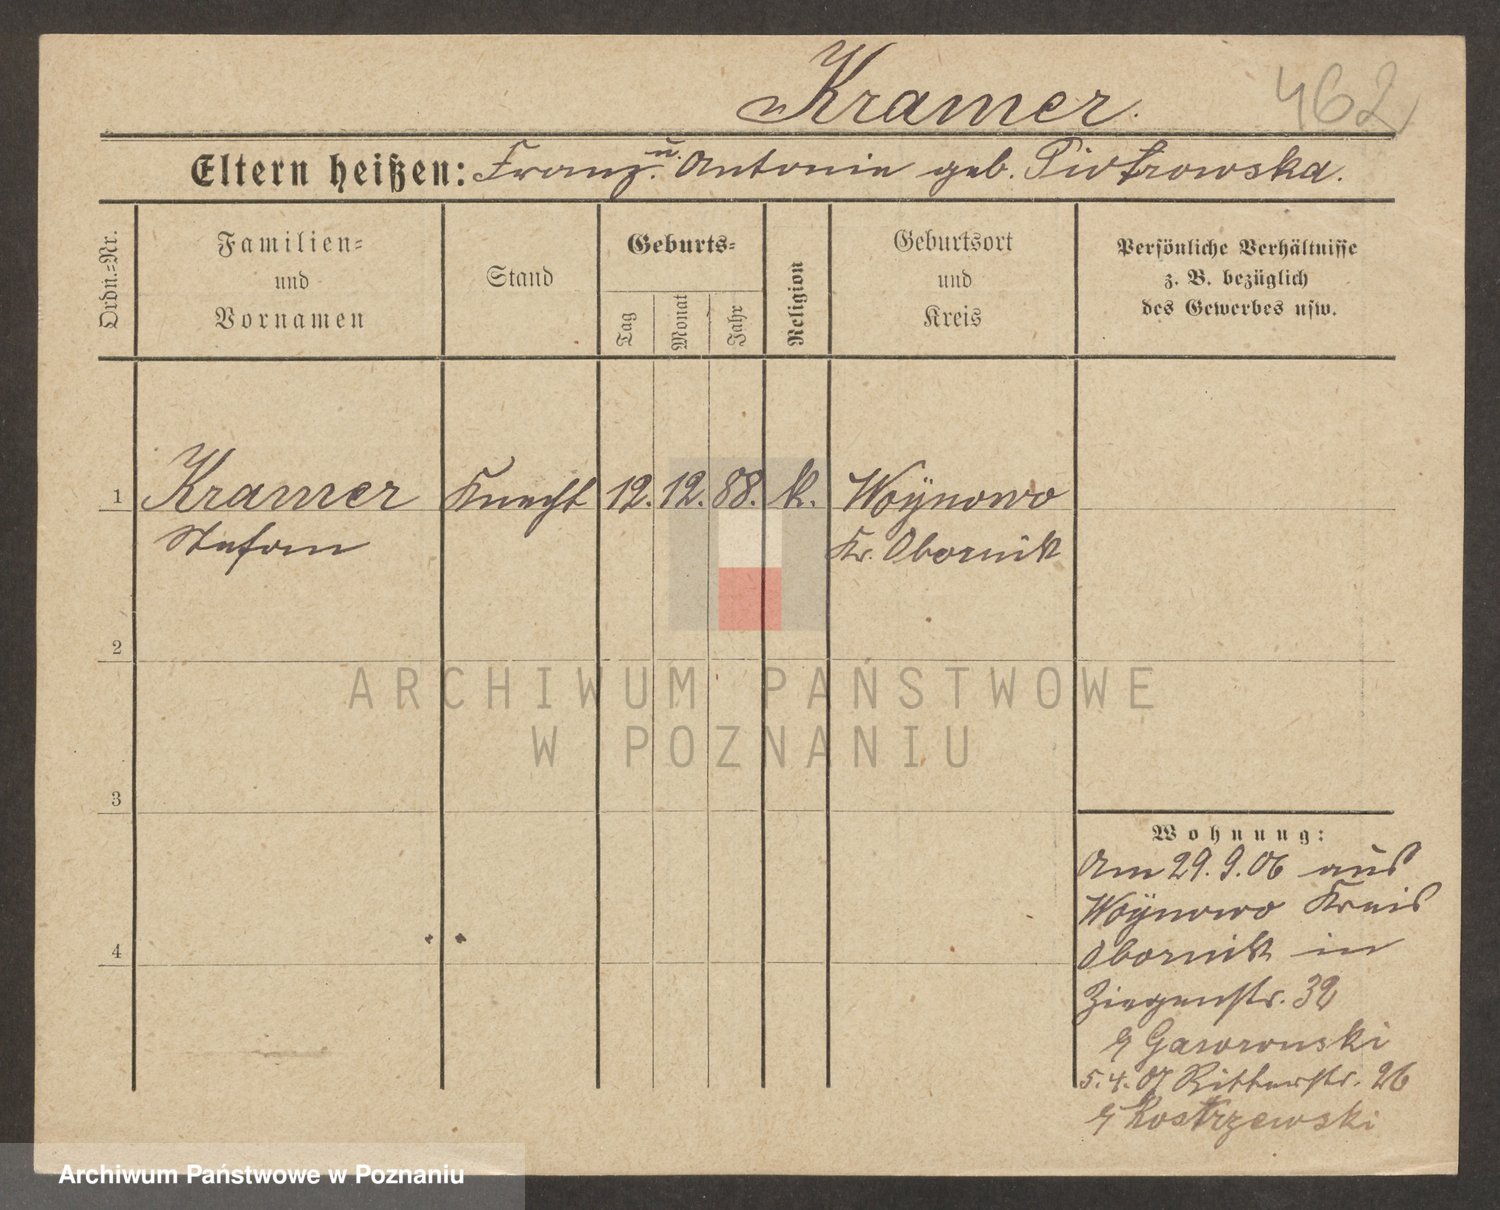 Kramer.
462
Eltern heißen: Franz u. Antonie geb. Piotrowska.
Ordn.=Nr.
Familien=
und
Vornamen
Stand
Geburts=
Tag
Monat
Jahr
Religion
Geburtsort
und
Kreis
Persönliche Verhältnisse
z. B. bezüglich
des Gewerbes usw.
1 Kramer Knecht 12. 12. 88. k. Woÿnowo
Stefan Kr. Obornik
2
ARCHIWUM PAŃSTWOWE
W POZNANIU
3
Wohnung:
Am 29. 9. 06 aus
Woÿnowo Kreis
Obornik in
4
Ziegenstr. 32
Gaworonski
5. 4. 07 Ritterstr. 26
Kostrzewski
Archiwum Państwowe w Poznaniu